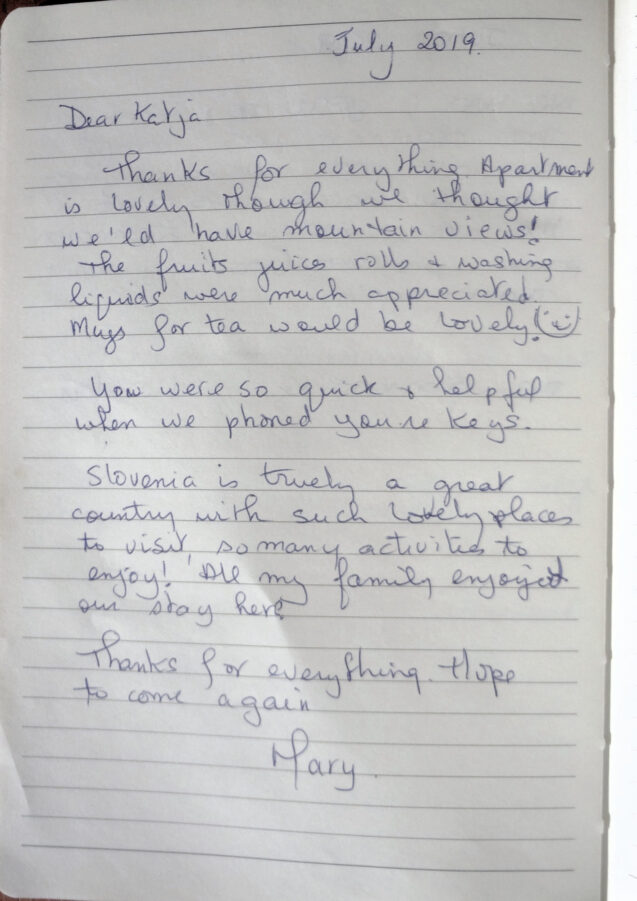 July 2019.
Dear Katja
Thanks for everything. Apartment
is lovely though we thought
we'eld have mountain views!
The fruits juices rolls & washing
liquids were much appreciated.
Mugs for tea would be lovely!
You were so quick & helpful
when we phoned you re keys.
Slovenia is truely a great
country with such lovely places
to visit, so many activities to
enjoy! All my family enjoyed
our stay here
Thanks for everything. Hope
to come again
Mary.